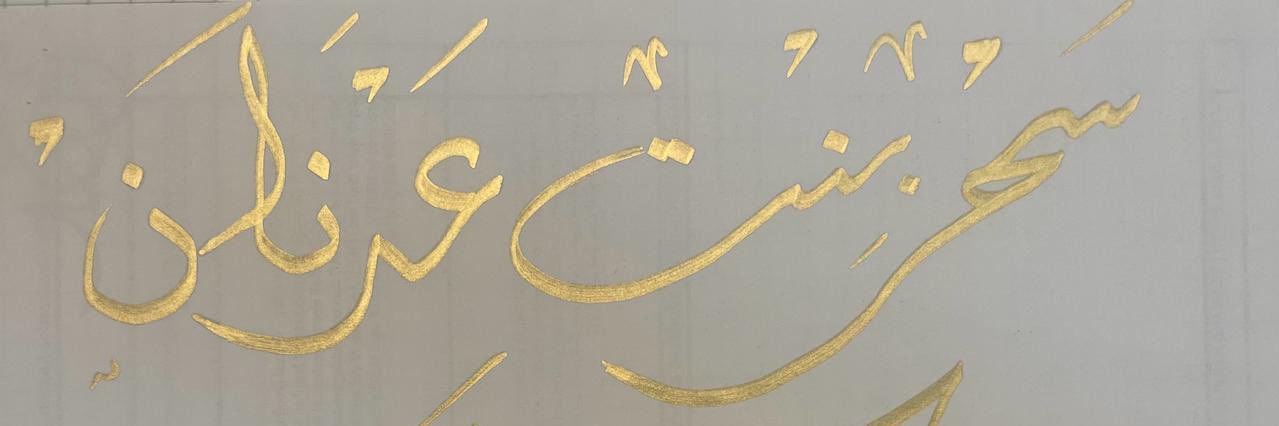 سَحْر بِنْت عَدْنَانْ